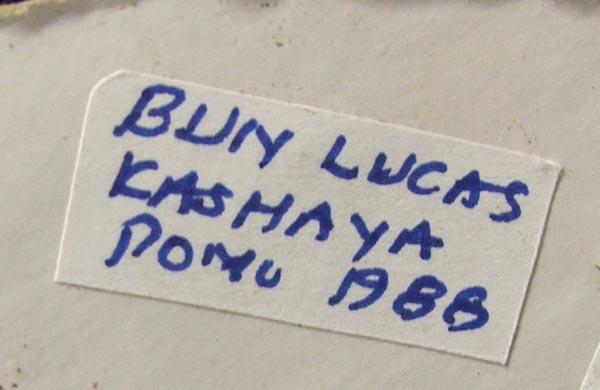 BUN LUCAS
KASHAYA
POMO 1988